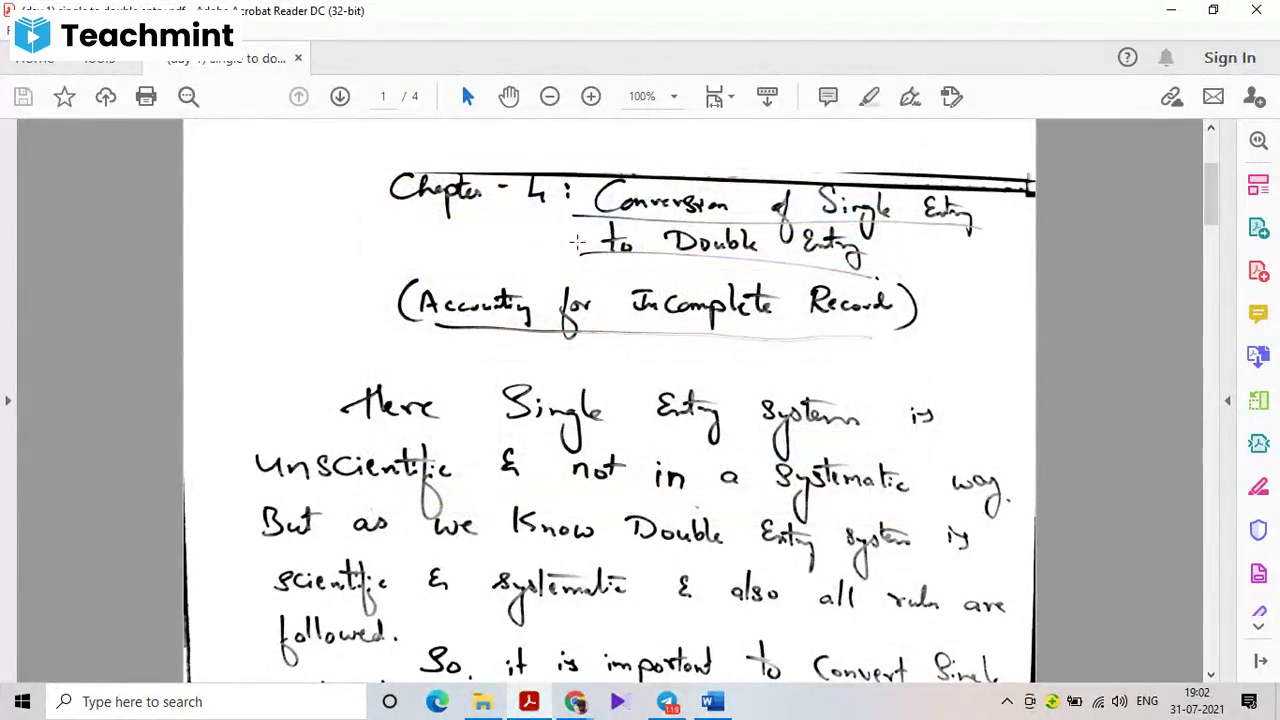 (day 1) single to double entry.pdf - Adobe Acrobat Reader DC (32-bit)
Teachmint
Home Tools (day 1) single to do... ×
Sign In
1 / 4 100%
Chapter - 4 : Conversion of Single Entry
to Double Entry
(Accounting for Incomplete Record)
Here Single Entry system is
unscientific & not in a systematic way.
But as we Know Double Entry system is
scientific & systematic & also all rules are
followed.
So, it is important to convert Single
Type here to search
119
ENG
19:02
31-07-2021